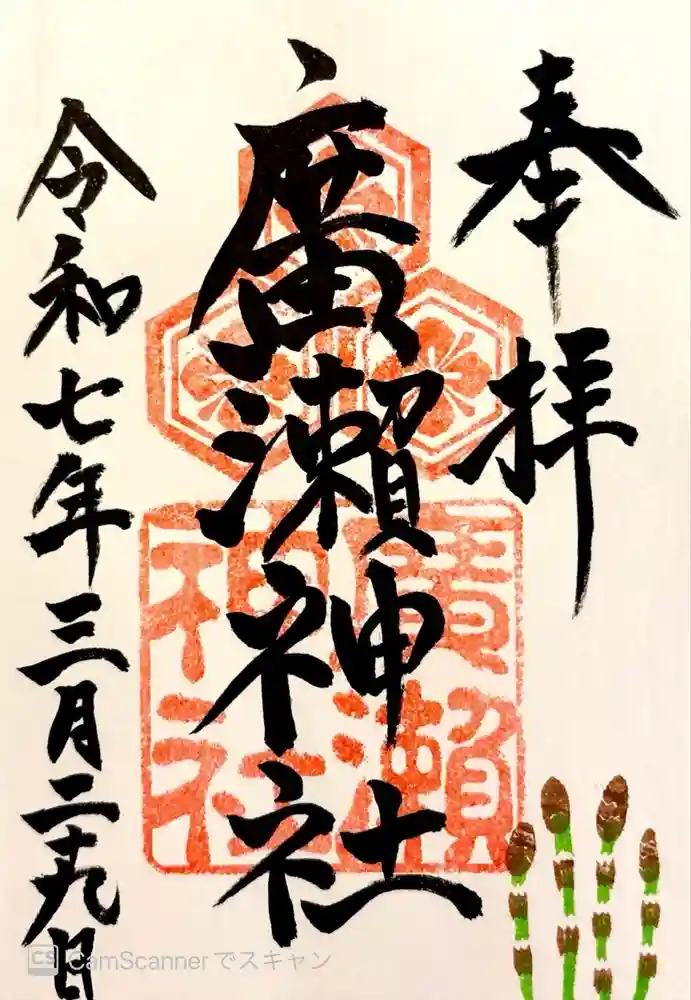 奉拝
廣瀬神社
廣瀬神社
令和七年三月二十九日
CS CamScannerでスキャン